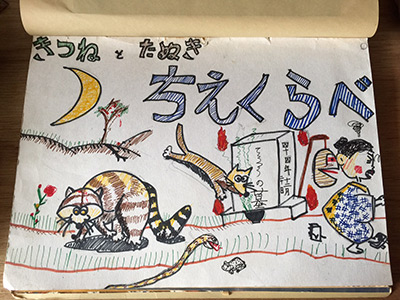 きつね と たぬき
ちえくらべ
四十四年十二月
の墓